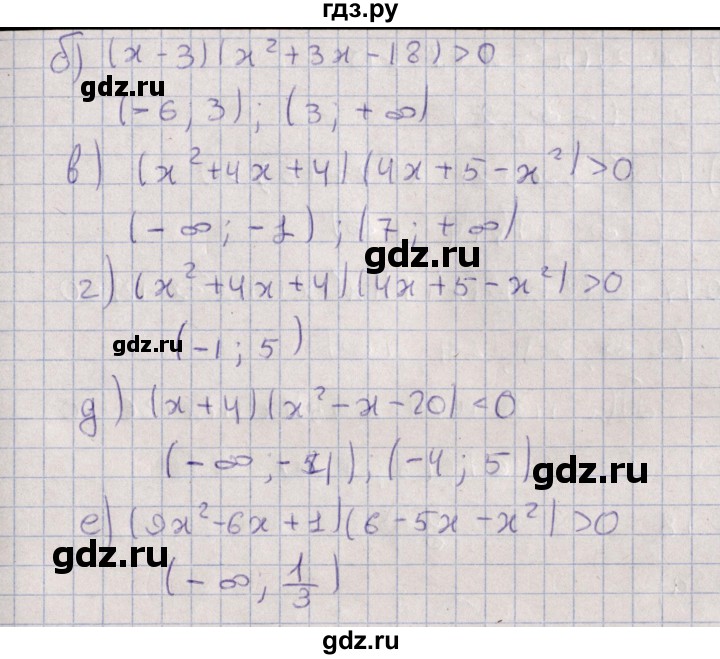 гдз.ру
б) (x-3)(x²+3x-18)>0
gdz.ru
(-6; 3); (3; +∞)
в) (x²+4x+4)(4x+5-x²)>0
(-∞; -1); (7; +∞)
gdz.ru
г) (x²+4x+4)(4x+5-x²)>0
gdz.ru
(-1; 5)
д) (x+4)(x²-x-20)<0
(-∞; -4); (-4; 5)
gdz.ru
е) (9x²-6x+1)(6-5x-x²)>0
gdz.ru
(-∞; 1/3)
gdz.ru